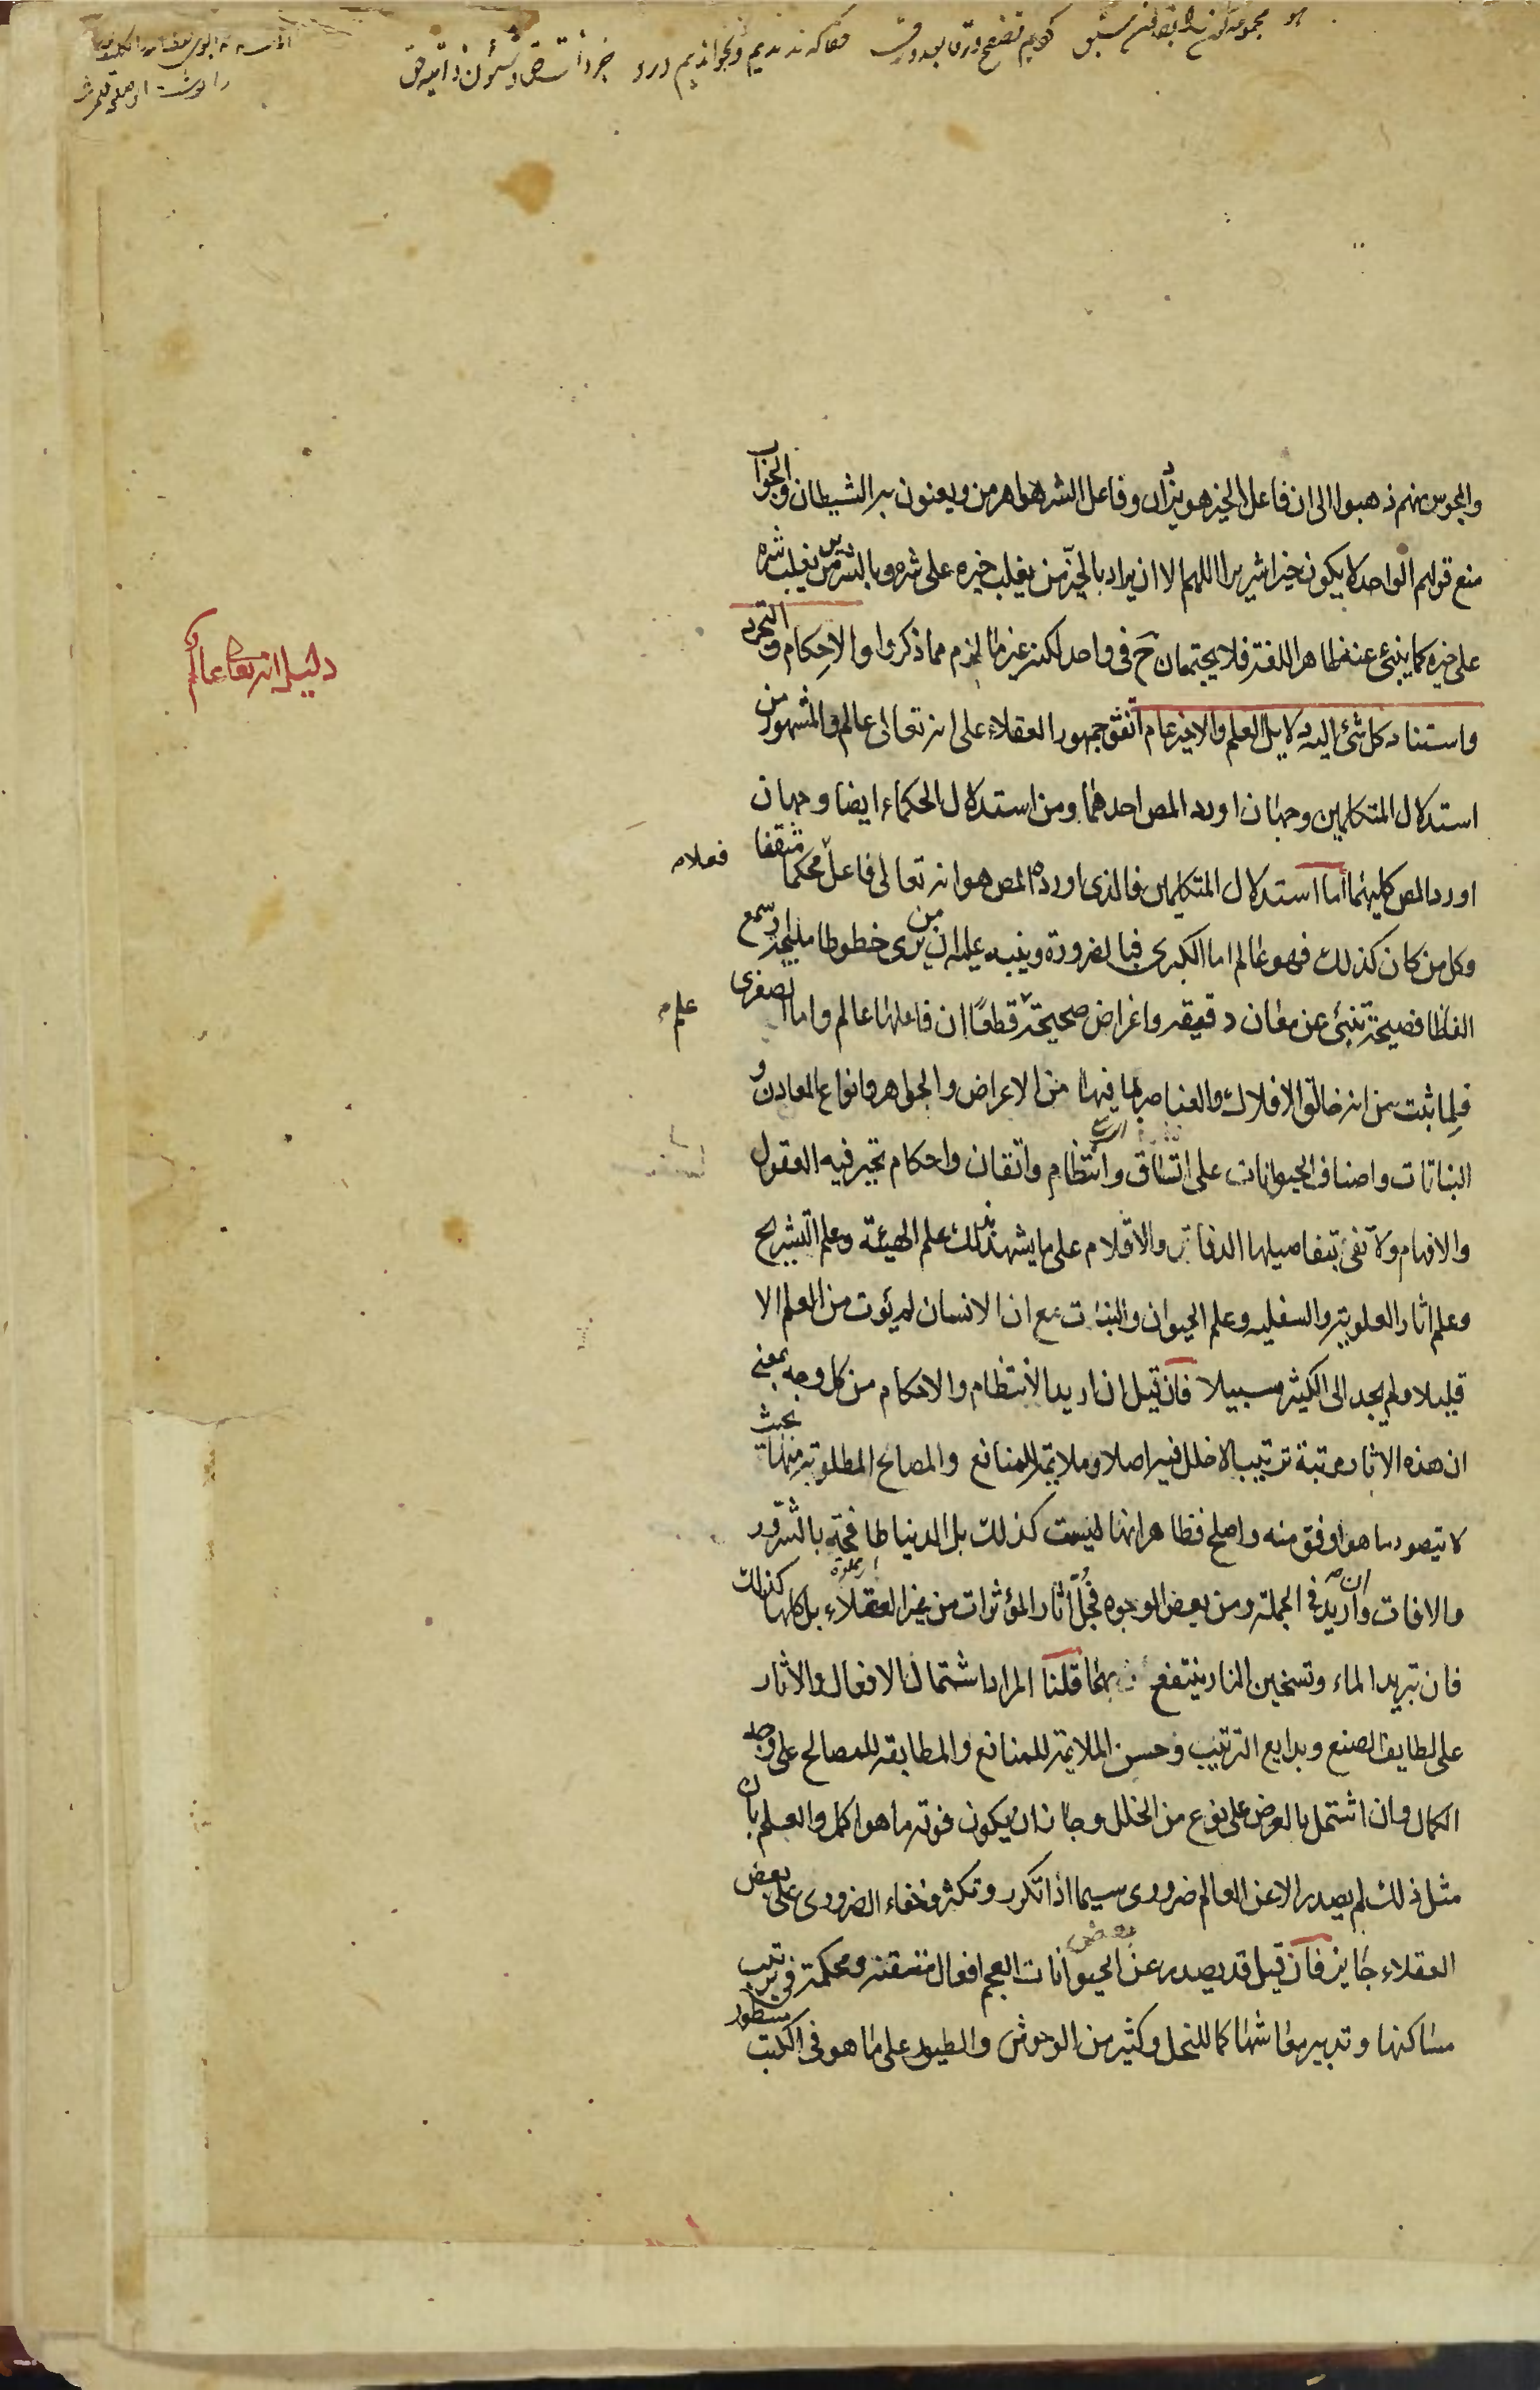 والمجوس منهم ذهبوا الى ان فاعل الخير هو يزدان وفاعل الشر هو اهرمن ويعنون به الشيطان والجواب
منع قولهم الواحد لا يكون خيرا شريرا اللهم الا ان يراد بالخير من يغلب خيره على شره وبالشرير من يغلب شره
على خيره كما ينبئ عنه ظاهر اللغة فلا يجتمعان ح فى واحد لكنه غير ما لزم مما ذكروا والاحكام والتجرد
واستناد كل شئ اليه دلايل العلم والاخير عام اتفق جمهور العقلاء على انه تعالى عالم والمشهور من
استدلال المتكلمين وجهان اورد المص احدهما ومن استدلال الحكماء ايضا وجهان
اورد المص كليهما اما استدلال المتكلمين فالذى اورده المص هو انه تعالى فاعل محكما متقنا
فعلا
وكل من كان كذلك فهو عالم اما الكبرى فبالضرورة وينبه عليه ان من يرى خطوطا مليحة او سمع
الفاظا فصيحة تنبئ عن معان دقيقه واغراض صحيحة قطعا ان فاعلها عالم واما الصغرى
علم
فلما ثبت من انه خالق الافلاك والعناصر بما فيها من الاعراض والجواهر وانواع المعادن و
النباتات واصناف الحيوانات على اتساق وانتظام واتقان واحكام تحير فيه العقول
والافهام ولا تفى بتفاصيلها الدفاتر والاقلام على ما يشهد بذلك علم الهيئة وعلم التشريح
وعلم اثار العلوية والسفليه وعلم الحيوان والنبات مع ان الانسان لم يؤت من العلم الا
قليلا ولم يجد الى الكثير سبيلا فان قيل ان اريد الانتظام والاحكام من كل وجه بمعنى
ان هذه الاثار مرتبة ترتيب لا خلل فيه اصلا وملايمة للمنافع والمصالح المطلوبة منها بحيث
لا يتصور ما هو اوفق منه واصلح فظاهر انها ليست كذلك بل الدنيا طافحة بالشرور
والافات وان اريد فى الجملة ومن بعض الوجوه فجل اثار المؤثرات من غير العقلاء بل كلها كذلك
فان تبريد الماء وتسخين النار ينتفع بهما قلنا المراد اشتمال الافعال والاثار
على لطايف الصنع وبدايع الترتيب وحسن الملايمة للمنافع والمطابقه للمصالح على وجه
الكمال وان اشتمل بالعرض على نوع من الخلل وجاز ان يكون فوقه ما هو اكمل والعلم بان
مثل ذلك لم يصدر الا عن العالم ضرورى سيما اذا تكرر وتكثر وخفاء الضرورى على بعض
العقلاء جايز فان قيل قد يصدر عن بعض الحيوانات العجم افعال متقنه ومحكمة فى ترتيب
مساكنها وتدبير معاشها كما للنحل وكثير من الوحوش والطيور على ما هو فى الكتب مسطور
دليل انه تعالى عالم